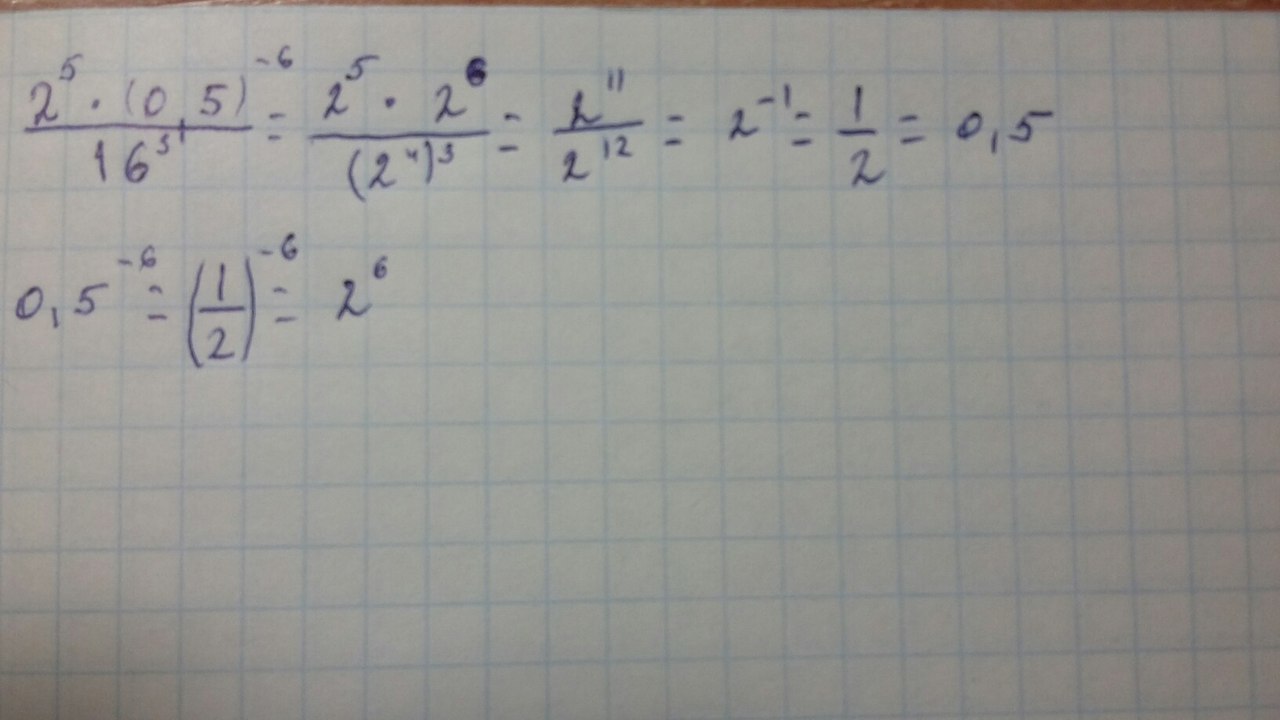 2⁵ · (0,5)⁻⁶ / 16³ = 2⁵ · 2⁶ / (2⁴)³ = 2¹¹ / 2¹² = 2⁻¹ = 1/2 = 0,5
0,5⁻⁶ = (1/2)⁻⁶ = 2⁶